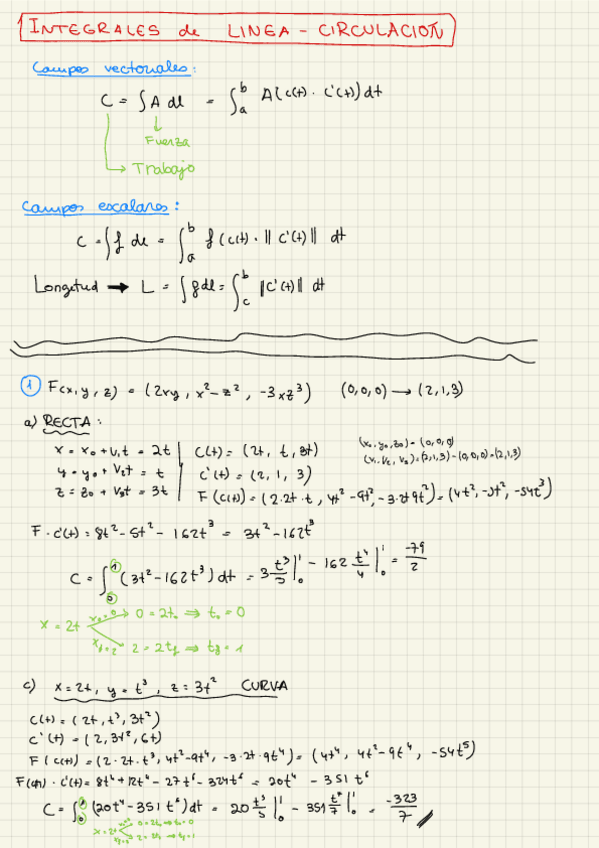 INTEGRALES de LINEA - CIRCULACION
Campos vectoriales:
C = ∫ A dl = ∫_a^b A(c(t) · c'(t)) dt
Fuerza
Trabajo
Campos escalares:
C = ∫ f dl = ∫_a^b f(c(t) · || c'(t) || dt
Longitud → L = ∫ f dl = ∫_c^b ||c'(t)|| dt
① F(x, y, z) = (2xy, x² - z², -3xz³) (0,0,0) → (2,1,3)
a) RECTA:
x = x₀ + v₁t = 2t | c(t) = (2t, t, 3t) (x₀, y₀, z₀) = (0,0,0)
y = y₀ + v₂t = t | c'(t) = (2, 1, 3) (v₁, v₂, v₃) = (2,1,3) - (0,0,0) = (2,1,3)
z = z₀ + v₃t = 3t | F(c(t)) = (2·2t·t, 4t² - 9t², -3·2t 9t²) = (4t², -5t², -54t³)
F · c'(t) = 8t² - 5t² - 162t³ = 3t² - 162t³
C = ∫_0^1 (3t² - 162t³) dt = 3 t³/3 |_0^1 - 162 t⁴/4 |_0^1 = -79/2
x = 2t x₀=0 → 0 = 2t₀ ⇒ t₀ = 0
x_f=2 → 2 = 2t_f ⇒ t_f = 1
c) x = 2t, y = t³, z = 3t² CURVA
c(t) = (2t, t³, 3t²)
c'(t) = (2, 3t², 6t)
F(c(t)) = (2·2t·t³, 4t² - 9t⁴, -3·2t·9t⁴) = (4t⁴, 4t² - 9t⁴, -54t⁵)
F(c(t)) · c'(t) = 8t⁴ + 12t⁴ - 27t⁶ - 324t⁶ = 20t⁴ - 351t⁶
C = ∫_0^1 (20t⁴ - 351t⁶) dt = 20 t⁵/5 |_0^1 - 351 t⁷/7 |_0^1 = -323/7
x = 2t x₀=0 → 0 = 2t₀ → t₀ = 0
x_f=2 → 2 = 2t_f → t_f = 1